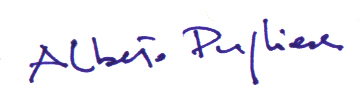 Alberto Pugliese